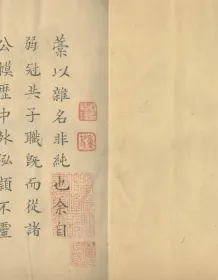 藁以雜名非純也余自
弱冠共子職既而從諸
公模歷中外泓穎不靈